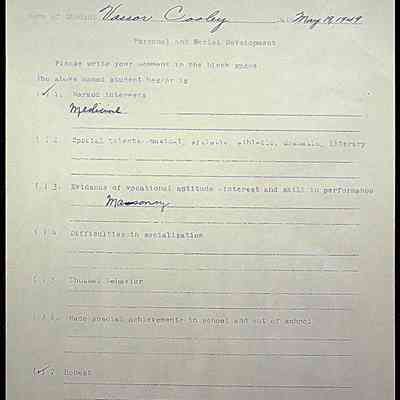 Name of Student Vassor Cooley May 19, 1949
Personal and Social Development
Please write your comment in the blank space
The above named student has/or is
(✓) 1. Marked interests
Medicine
( ) 2. Special talents- musical, artistic, athletic, dramatic, literary
( ) 3. Evidence of vocational aptitude -interest and skill in performance
Masonry
( ) 4. Difficulties in socialization
( ) 5. Unusual behavior
( ) 6. Made special achievements in school and out of school
(✓) 7. Honest